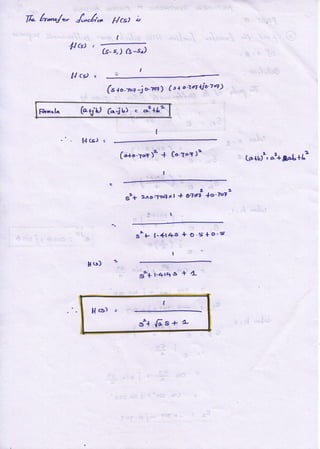 The transfer function H(s) is
H(s) = 1 / (s-s₁) (s-s₂)
H(s) = 1 / (s+0.707-j0.707) (s+0.707+j0.707)
Formula (a+jb) (a-jb) = a²+b²
∴ H(s) = 1 / (s+0.707)² + (0.707)² (a+b)² = a²+2ab+b²
= 1 / s²+ 2×0.707×s + 0.707² +0.707²
= 1 / s²+ 1.414s + 0.5+0.5
H(s) = 1 / s²+1.414s + 1
∴ H(s) = 1 / s²+ √2 s + 1